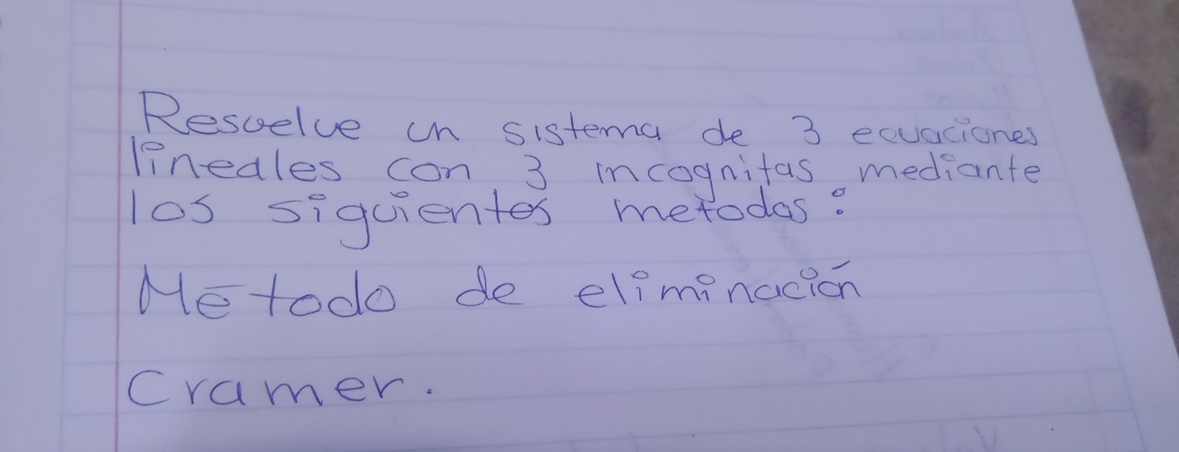 Resuelve un sistema de 3 ecuaciones
lineales con 3 incognitas mediante
los siguientes metodos:
Método de eliminación
Cramer.